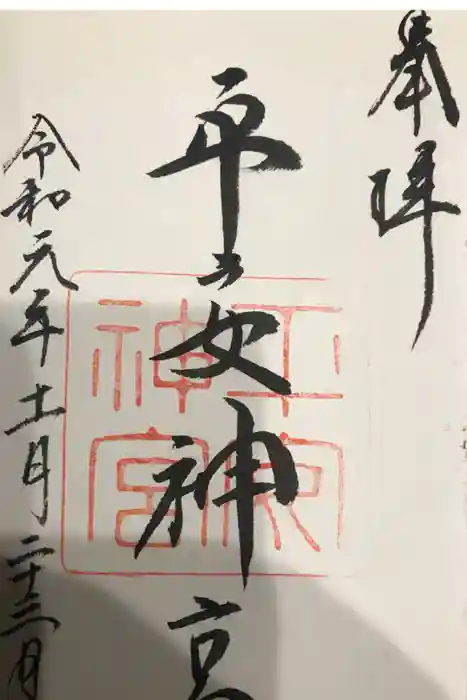 奉拝
平安神宮
令和元年十一月二十三日
平安神宮